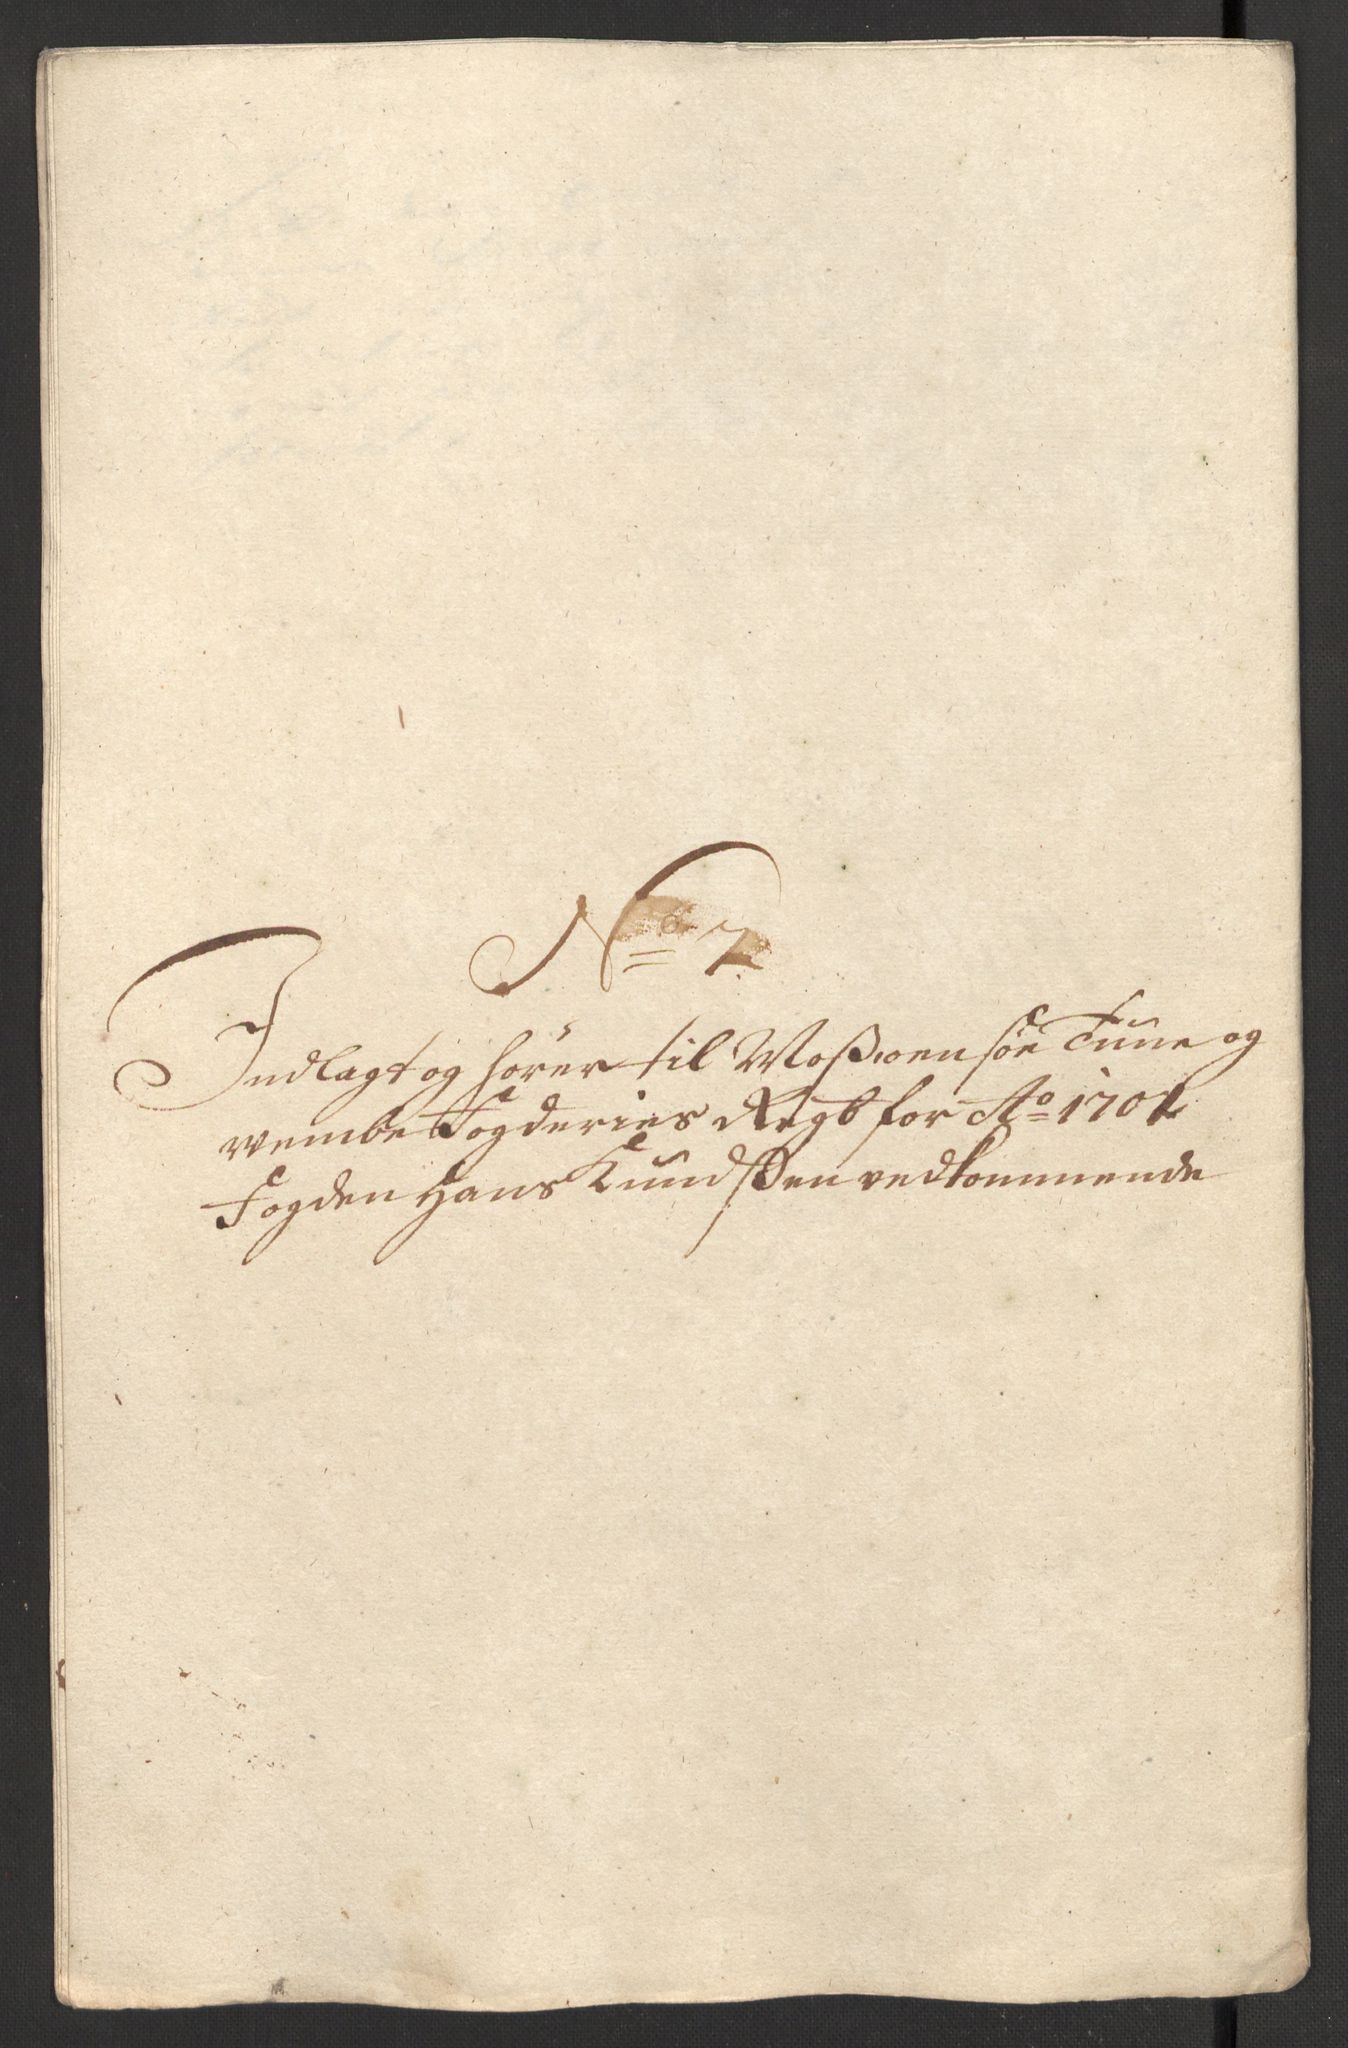 No 7
Indlagt og hører til Moß Onsøe Tune og
Wembe Fogderies Regsb for Ao 1701
Fogden Hans Knudsßen vedkommende